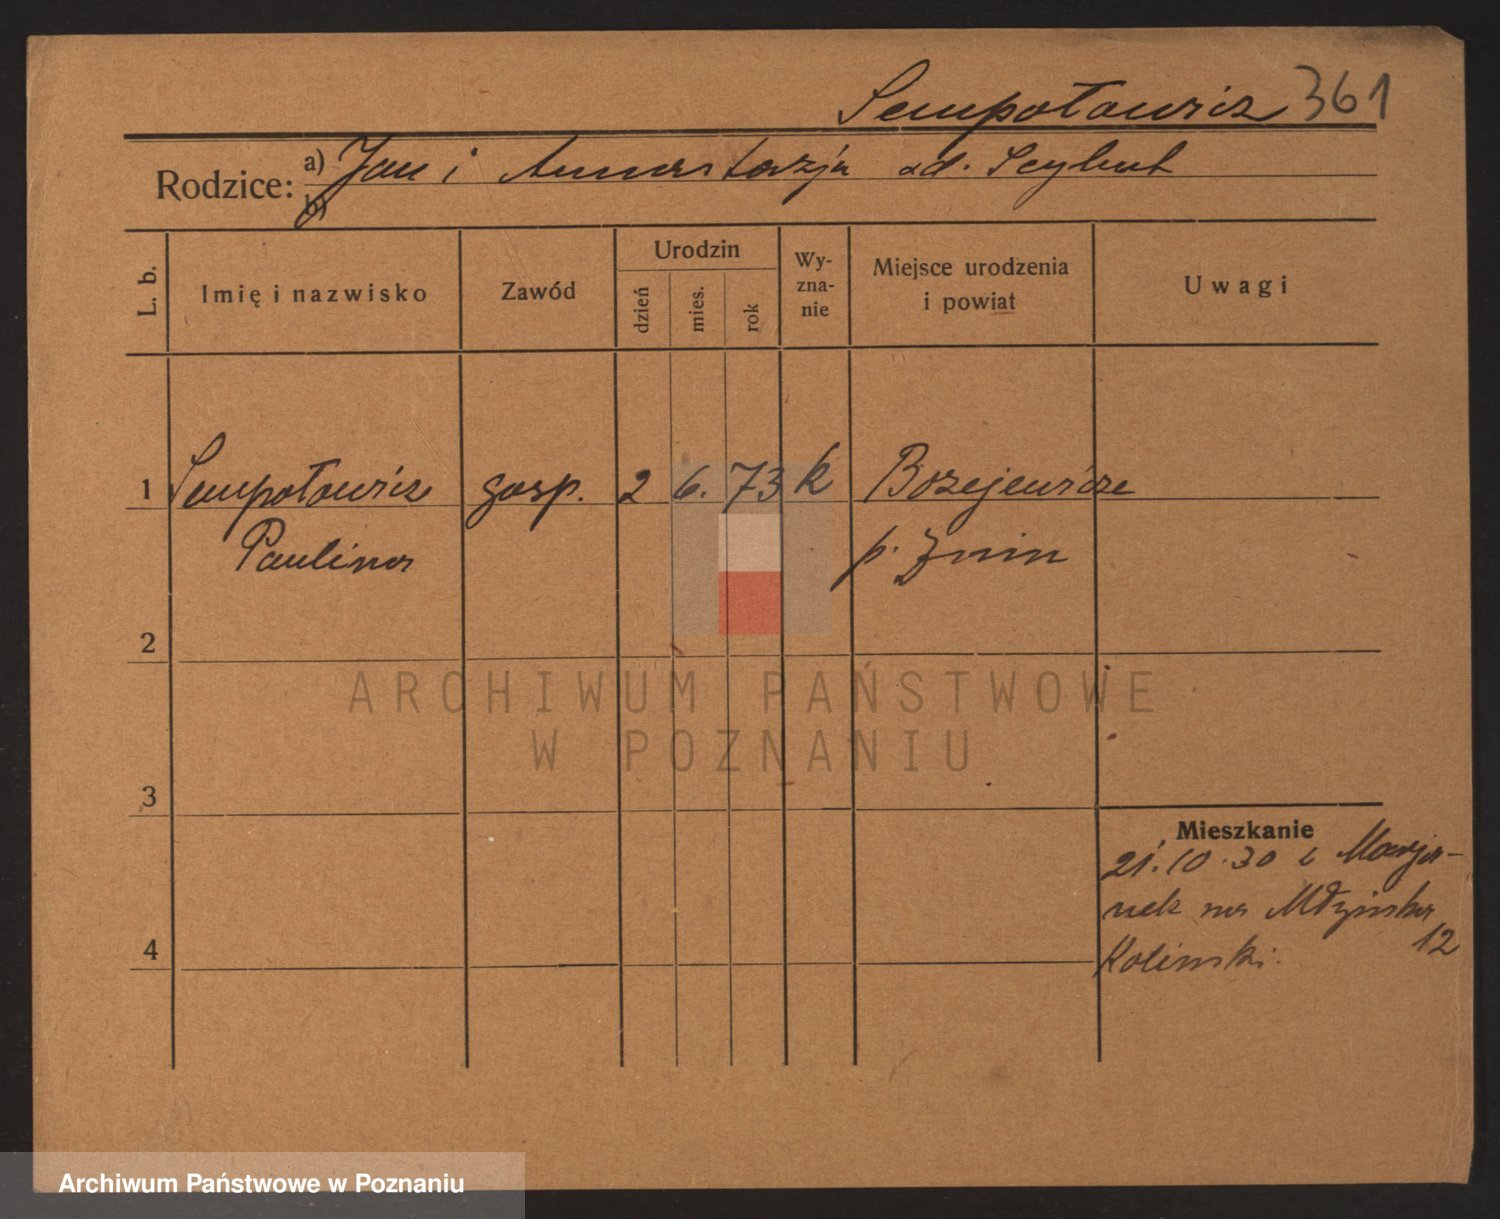 Sempołowicz 361
Rodzice: a) Jan i Anastazja od. Scybut
b)
L. b.
Imię i nazwisko
Zawód
Urodzin
dzień
mies.
rok
Wy-
zna-
nie
Miejsce urodzenia
i powiat
Uwagi
1 Sempołowicz gosp. 2 6. 73 k Bożejewice
Paulina p. Żnin
2
3
4
Mieszkanie
21.10.30 z Marja-
nek na
12
Kolinski.
ARCHIWUM PAŃSTWOWE
W POZNANIU
Archiwum Państwowe w Poznaniu